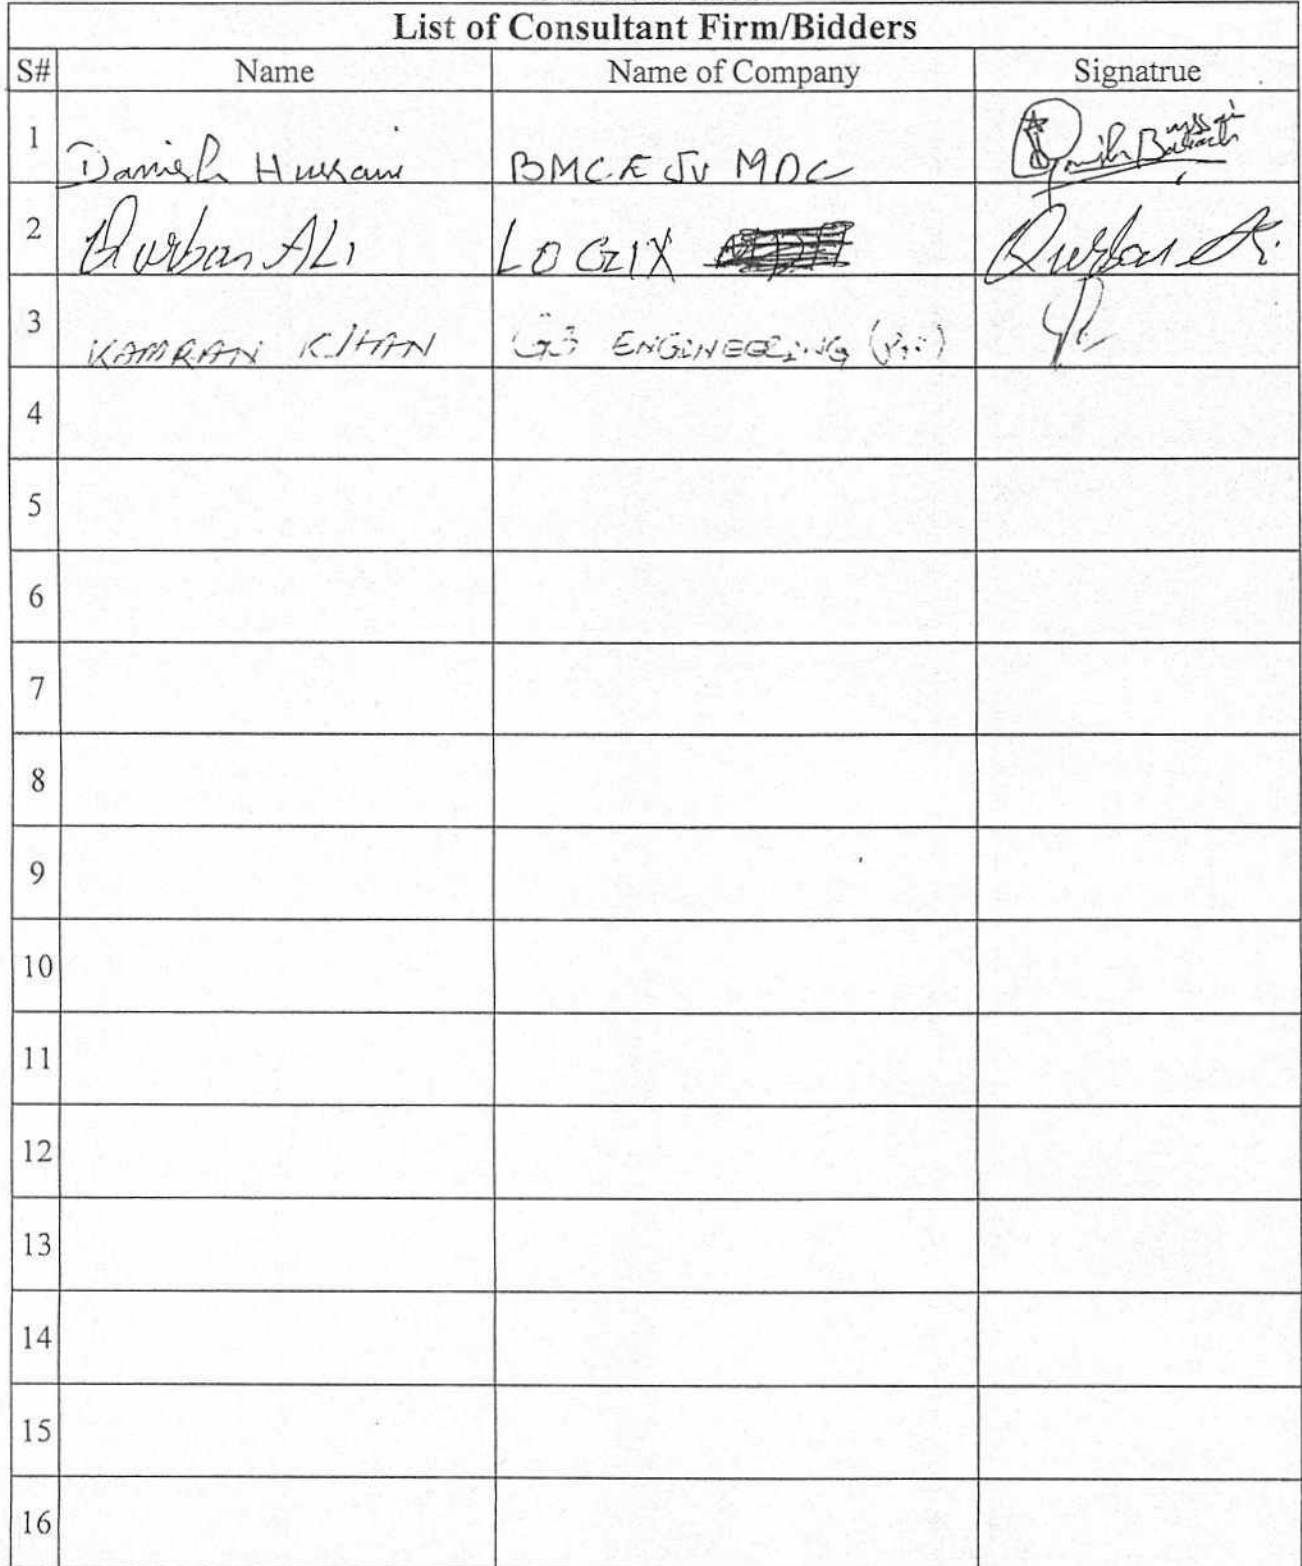 List of Consultant Firm/Bidders
S# Name Name of Company Signatrue
1 Danish Hussain BMCE JV MDC Danish
2 Qurban ALi LOGIX Qurban
3 KAMRAN KHAN ENGINEERING
4
5
6
7
8
9
10
11
12
13
14
15
16